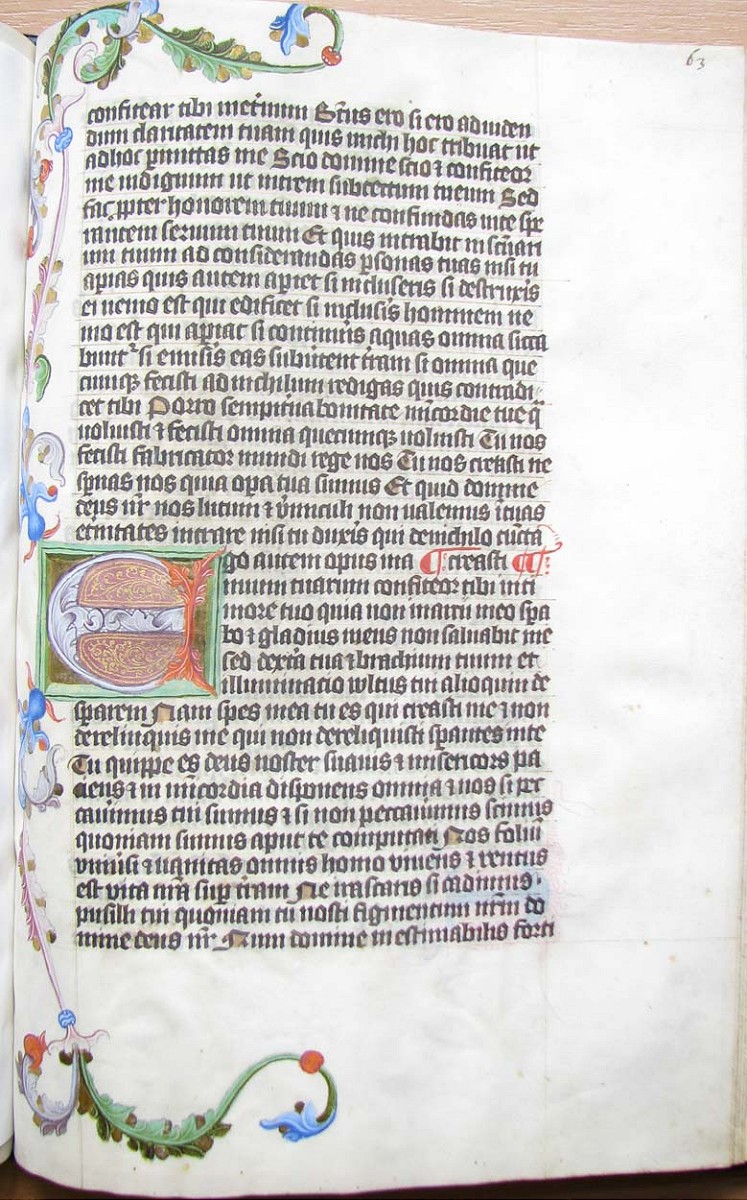 63
confitear tibi metimm Sc̄tus ero si ero ad uiden
dum claritatem tuam quis michi hoc tribuat ut
ad hoc p̱mittas me Scio domine scio ⁊ confiteor
me indignum ut intrem subtectum tuum Sed
fac ꝓpter honorem tuum ⁊ ne confundas inte spe
rantem seruum tuum Et quis intrabit in sc̄uari
um tuum ad considerandas ꝑsonas tuas nisi tu
aꝑias quis autem aꝑiet si incluseris si destruxis
ei nemo est qui edificet si inclusis hominem ne
mo est qui aꝑiat si continuis aquas omnia sicca
bunt᷑ si emisis eas subuertent t̄ram si omnia que
cumqꝫ fecisti ad nichilum redigas quis contradi
cet tibi Porro sempit̄na bonitate mīcordie tue q̄
uoluisti ⁊ fecisti omnia quecumqꝫ uoluisti Tu nos
fecisti fabricator mundi rege nos Tu nos creasti ne
spnas nos quia oꝑa tua sumus Et quid domine
deus nr̄ nos lutum ⁊ v̄miculi non ualemus ītuas
et̄nitates intrare nisi tu duxis qui denichilo cūcta
Ego autem opus ma ¶ creasti
nuum tuarum confiteor tibi inti
more tuo quia non in arcu meo spa
bo ⁊ gladius meus non saluabit me
sed dext̄a tua ⁊ brachium tuum et
illuminatio wltus tui alioquin de
sꝑarem Nam spes mea tu es qui creasti me ⁊ non
derelinquis me qui non dereliquisti sꝑantes inte
Tu quippe es deus noster suauis ⁊ misericors pa
ciens ⁊ in mīcordia disponens omnia ⁊ nos si pec
cauimus tui sumus ⁊ si non peccauimus scimus
quoniam sumus aput te computati Nos foliū
vniusi ⁊ uanitas omnis homo viuens ⁊ ventus
est vita nr̄a suꝑ t̄ram Ne irascaris si cadimus
pusilli tui quoniam tu nosti figmentum nr̄m do
mine deus nr̄ Num domine inestimabilis forti